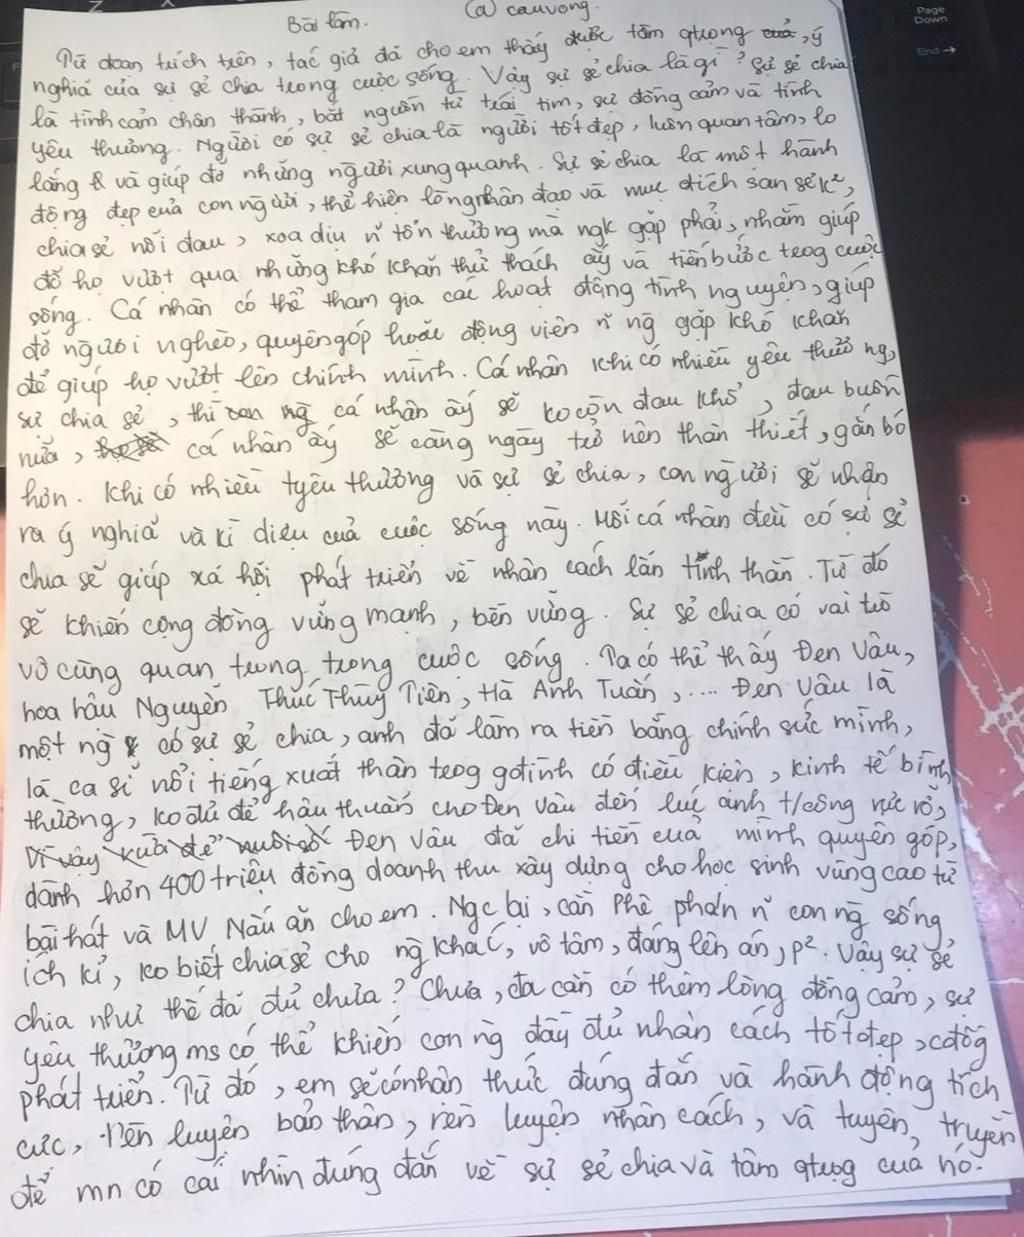 Page
Down
End →
Bài làm.
@ cauvong.
Từ đoạn trích trên, tác giả đã cho em thấy được tầm qtrọng của, ý
nghĩa của sự sẻ chia trong cuộc sống. Vậy sự sẻ chia là gì? Sự sẻ chia
là tình cảm chân thành, bắt nguồn từ trái tim, sự đồng cảm và tình
yêu thương. Người có sự sẻ chia là người tốt đẹp, luôn quan tâm, lo
lắng và giúp đỡ những người xung quanh. Sự sẻ chia là một hành
động đẹp của con người, thể hiện lòng nhân đạo và mục đích san sẻ k²,
chia sẻ nỗi đau, xoa dịu n~ tổn thương mà ngk gặp phải, nhằm giúp
đỡ họ vượt qua những khó khăn thử thách ấy và tiến bước trog cuộc
sống. Cá nhân có thể tham gia các hoạt động tình nguyện, giúp
đỡ người nghèo, quyên góp hoặc động viên n~ ng gặp khó khăn
để giúp họ vượt lên chính mình. Cá nhân khi có nhiều yêu thương,
sự chia sẻ, thì con ng cá nhân ấy sẽ ko còn đau khổ, đau buồn
nữa, cá nhân ấy sẽ càng ngày trở nên thân thiết, gắn bó
hơn. Khi có nhiều tyêu thương và sự sẻ chia, con người sẽ nhận
ra ý nghĩa và kì diệu của cuộc sống này. Mỗi cá nhân đều có sự sẻ
chia sẽ giúp xã hội phát triển về nhân cách lẫn tinh thần. Từ đó
sẽ khiến cộng đồng vững mạnh, bền vững. Sự sẻ chia có vai trò
vô cùng quan trọng trong cuộc sống. Ta có thể thấy Đen Vâu,
hoa hậu Nguyễn Thúc Thùy Tiên, Hà Anh Tuấn, .... Đen Vâu là
một ng có sự sẻ chia, anh đã làm ra tiền bằng chính sức mình,
là ca sĩ nổi tiếng xuất thân trog gđình có điều kiện, kinh tế bình
thường, ko đủ để hậu thuẫn cho Đen Vâu đến lúc ảnh t/công rực rỡ,
Vì vậy vừa để nuôi số Đen Vâu đã chi tiền của mình quyên góp,
dành hơn 400 triệu đồng doanh thu xây dựng cho học sinh vùng cao từ
bài hát và MV Nấu ăn cho em. Ngc lại, cần phê phán n~ con ng sống
ích kỉ, ko biết chia sẻ cho ng khác, vô tâm, đáng lên án, p². Vậy sự sẻ
chia như thế đã đủ chưa? Chưa, ta cần có thêm lòng đồng cảm, sự
yêu thương ms có thể khiến con ng đầy đủ nhân cách tốt đẹp, cđồg
phát triển. Từ đó, em sẽ có nhận thức đúng đắn và hành động tích
cực, rèn luyện bản thân, rèn luyện nhân cách, và tuyên truyền
để mn có cái nhìn đúng đắn về sự sẻ chia và tầm qtrọg của nó.